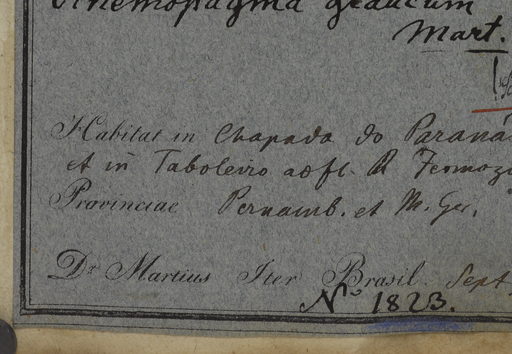 glaucum
Mart.
Habitat in Chapada do Paraná
et in Taboleiro ad fl. R Formozo
Provinciae Pernamb. et M. Ger.
Dr Martius Iter Brasil. Sept
No 1823.